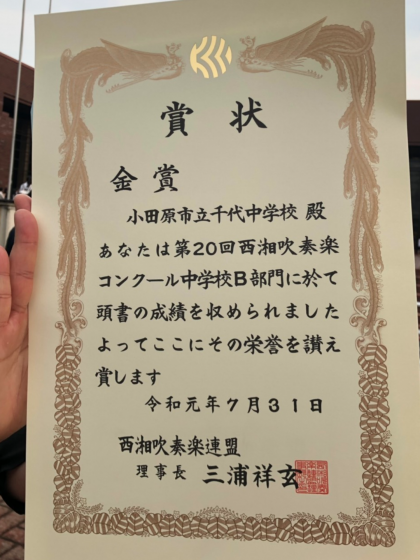 賞状
金賞
小田原市立千代中学校 殿
あなたは第20回西湘吹奏楽
コンクール中学校B部門に於て
頭書の成績を収められました
よってここにその栄誉を讃え
賞します
令和元年7月31日
西湘吹奏楽連盟
理事長 三浦祥玄